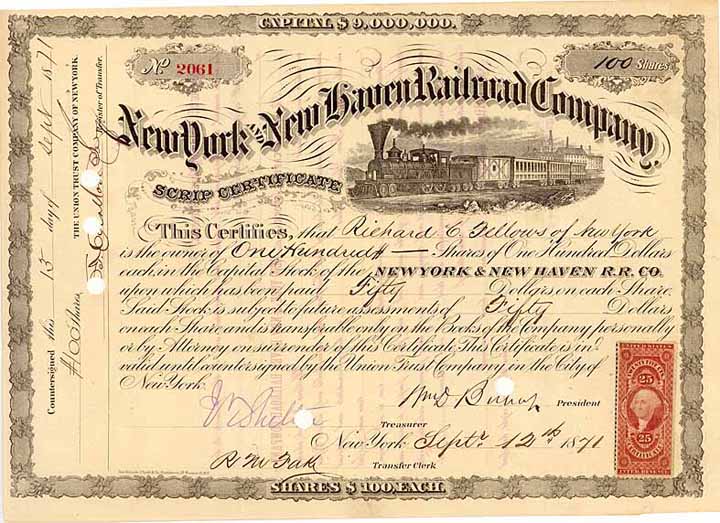 CAPITAL $ 9,000,000.
No 2061
100 Shares
New York and New Haven Railroad Company.
SCRIP CERTIFICATE
This Certifies, that Richard C. Fellows of New York
is the owner of One Hundred Shares of One Hundred Dollars
each in the Capital Stock of the NEW YORK & NEW HAVEN R.R. CO.
upon which has been paid Fifty Dollars on each Share.
Said Stock is subject to future assessments of Fifty Dollars
on each Share and is transferable only on the Books of the Company personally
or by Attorney on surrender of this Certificate. This Certificate is in-
valid until countersigned by the Union Trust Company in the City of
New York.
Wm D Bishop President
Treasurer
New York Septr 12th 1871
Transfer Clerk
SHARES $ 100, EACH.
Countersigned this 13 day of Sept 1871
THE UNION TRUST COMPANY OF NEW YORK.
Register of Transfer.
100 Shares
25
25